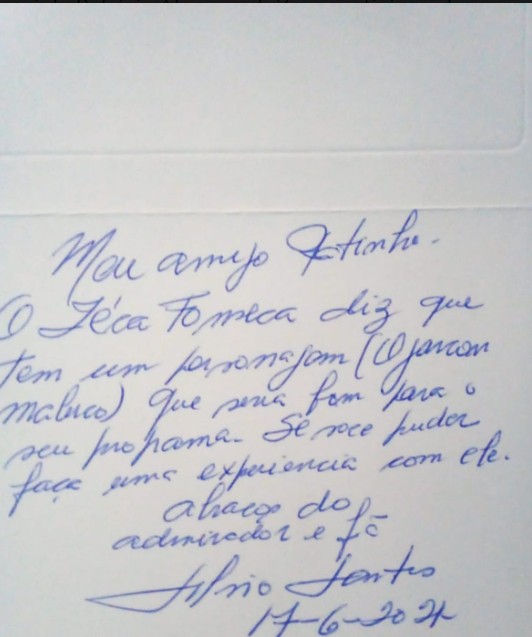 Meu amigo Ratinho.
O Zéca Fonseca diz que
tem um personagem (O garçon
maluco) que seria bom para o
seu programa. Se voce puder
faça uma experiencia com ele.
abraço do
admirador e fã
Silvio Santos
17-6-2021